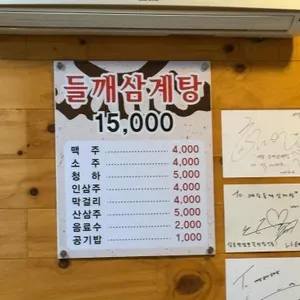 들깨삼계탕
15,000
맥 주 4,000
소 주 4,000
청 하 5,000
인삼주 4,000
막걸리 4,000
산삼주 5,000
음료수 2,000
공기밥 1,000